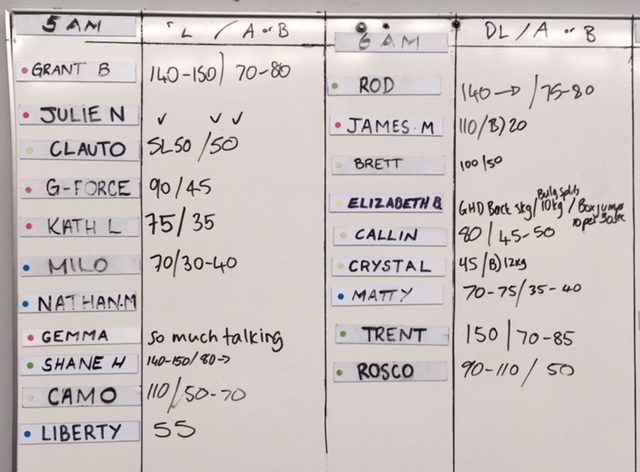 5 AM DL / A or B
GRANT B 140-150 / 70-80
JULIE N ✓ ✓ ✓
CLAUTO SL50 / 50
G-FORCE 90 / 45
KATH L 75 / 35
MILO 70 / 30-40
NATHAN.M
GEMMA so much talking
SHANE H 140-150 / 80→
CAMO 110 / 50-70
LIBERTY 55
6 AM DL / A or B
ROD 140 → / 75-80
JAMES.M 110 / B) 20
BRETT 100 / 50
ELIZABETH B GHD Back 5kg / Bulg splits 10kg / Box jumps 10 per 30sec
CALLIN 80 / 45-50
CRYSTAL 45 / B) 12kg
MATTY 70-75 / 35-40
TRENT 150 / 70-85
ROSCO 90-110 / 50